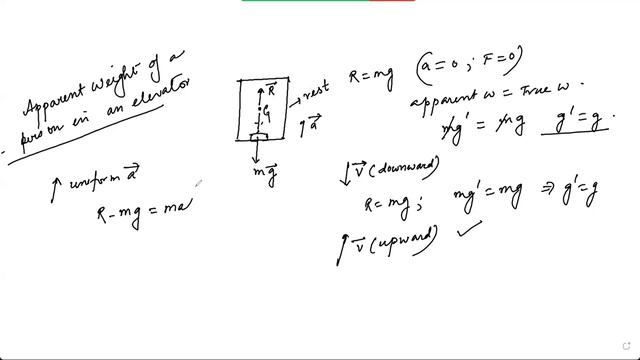 Apparent weight of a
person in an elevator
↑ uniform a⃗
R - mg = ma
R⃗
G
mg⃗
→ rest
↑ a⃗
R = mg (a = 0 ; F = 0)
apparent w = True w.
mg' = mg g' = g.
↓ v⃗ (downward)
R = mg ; mg' = mg ⇒ g' = g
↑ v⃗ (upward) ✓